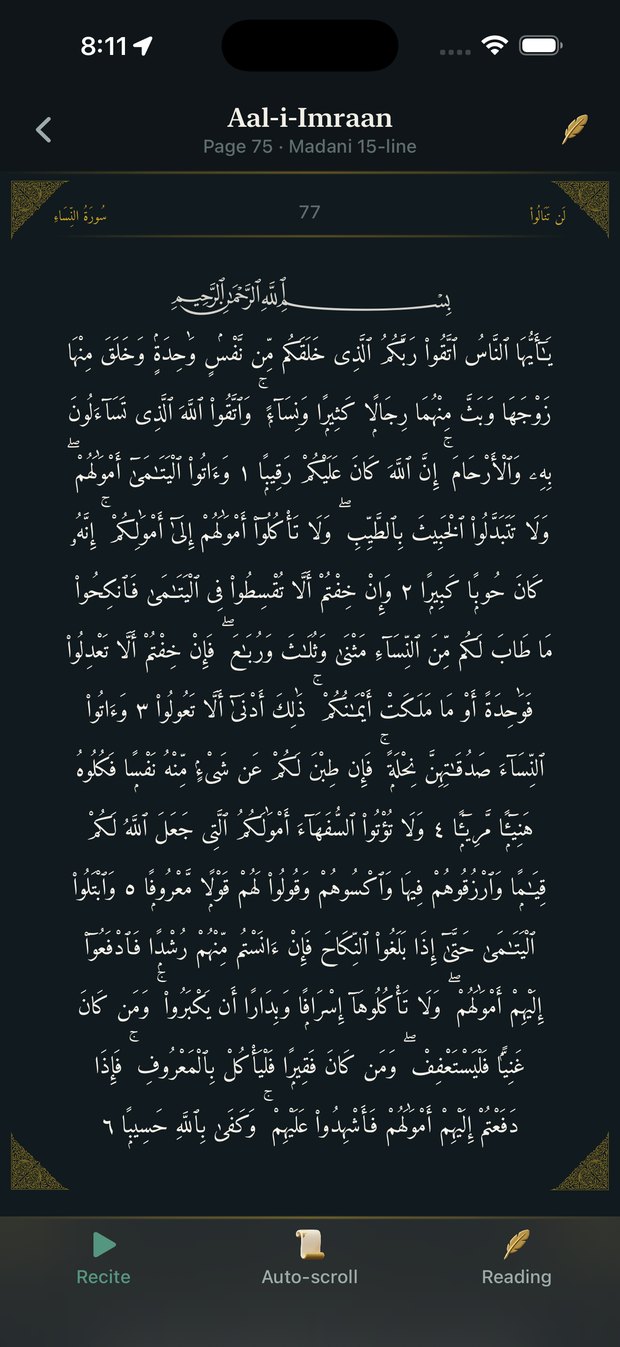 8:11
Aal-i-Imraan
Page 75 · Madani 15-line
لَن تَنَالُوا۟ 77 سُورَةُ النِّسَاءِ
بِسْمِ ٱللَّهِ ٱلرَّحْمَٰنِ ٱلرَّحِيمِ
يَـٰٓأَيُّهَا ٱلنَّاسُ ٱتَّقُوا۟ رَبَّكُمُ ٱلَّذِى خَلَقَكُم مِّن نَّفْسٍ وَٰحِدَةٍ وَخَلَقَ مِنْهَا
زَوْجَهَا وَبَثَّ مِنْهُمَا رِجَالًا كَثِيرًا وَنِسَآءً ۚ وَٱتَّقُوا۟ ٱللَّهَ ٱلَّذِى تَسَآءَلُونَ
بِهِۦ وَٱلْأَرْحَامَ ۚ إِنَّ ٱللَّهَ كَانَ عَلَيْكُمْ رَقِيبًا ١ وَءَاتُوا۟ ٱلْيَتَـٰمَىٰٓ أَمْوَٰلَهُمْ ۖ
وَلَا تَتَبَدَّلُوا۟ ٱلْخَبِيثَ بِٱلطَّيِّبِ ۖ وَلَا تَأْكُلُوٓا۟ أَمْوَٰلَهُمْ إِلَىٰٓ أَمْوَٰلِكُمْ ۚ إِنَّهُۥ
كَانَ حُوبًا كَبِيرًا ٢ وَإِنْ خِفْتُمْ أَلَّا تُقْسِطُوا۟ فِى ٱلْيَتَـٰمَىٰ فَٱنكِحُوا۟
مَا طَابَ لَكُم مِّنَ ٱلنِّسَآءِ مَثْنَىٰ وَثُلَـٰثَ وَرُبَـٰعَ ۖ فَإِنْ خِفْتُمْ أَلَّا تَعْدِلُوا۟
فَوَٰحِدَةً أَوْ مَا مَلَكَتْ أَيْمَـٰنُكُمْ ۚ ذَٰلِكَ أَدْنَىٰٓ أَلَّا تَعُولُوا۟ ٣ وَءَاتُوا۟
ٱلنِّسَآءَ صَدُقَـٰتِهِنَّ نِحْلَةً ۚ فَإِن طِبْنَ لَكُمْ عَن شَىْءٍ مِّنْهُ نَفْسًا فَكُلُوهُ
هَنِيٓـًٔا مَّرِيٓـًٔا ٤ وَلَا تُؤْتُوا۟ ٱلسُّفَهَآءَ أَمْوَٰلَكُمُ ٱلَّتِى جَعَلَ ٱللَّهُ لَكُمْ
قِيَـٰمًا وَٱرْزُقُوهُمْ فِيهَا وَٱكْسُوهُمْ وَقُولُوا۟ لَهُمْ قَوْلًا مَّعْرُوفًا ٥ وَٱبْتَلُوا۟
ٱلْيَتَـٰمَىٰ حَتَّىٰٓ إِذَا بَلَغُوا۟ ٱلنِّكَاحَ فَإِنْ ءَانَسْتُم مِّنْهُمْ رُشْدًا فَٱدْفَعُوٓا۟
إِلَيْهِمْ أَمْوَٰلَهُمْ ۖ وَلَا تَأْكُلُوهَآ إِسْرَافًا وَبِدَارًا أَن يَكْبَرُوا۟ ۚ وَمَن كَانَ
غَنِيًّا فَلْيَسْتَعْفِفْ ۖ وَمَن كَانَ فَقِيرًا فَلْيَأْكُلْ بِٱلْمَعْرُوفِ ۚ فَإِذَا
دَفَعْتُمْ إِلَيْهِمْ أَمْوَٰلَهُمْ فَأَشْهِدُوا۟ عَلَيْهِمْ ۚ وَكَفَىٰ بِٱللَّهِ حَسِيبًا ٦
Recite Auto-scroll Reading